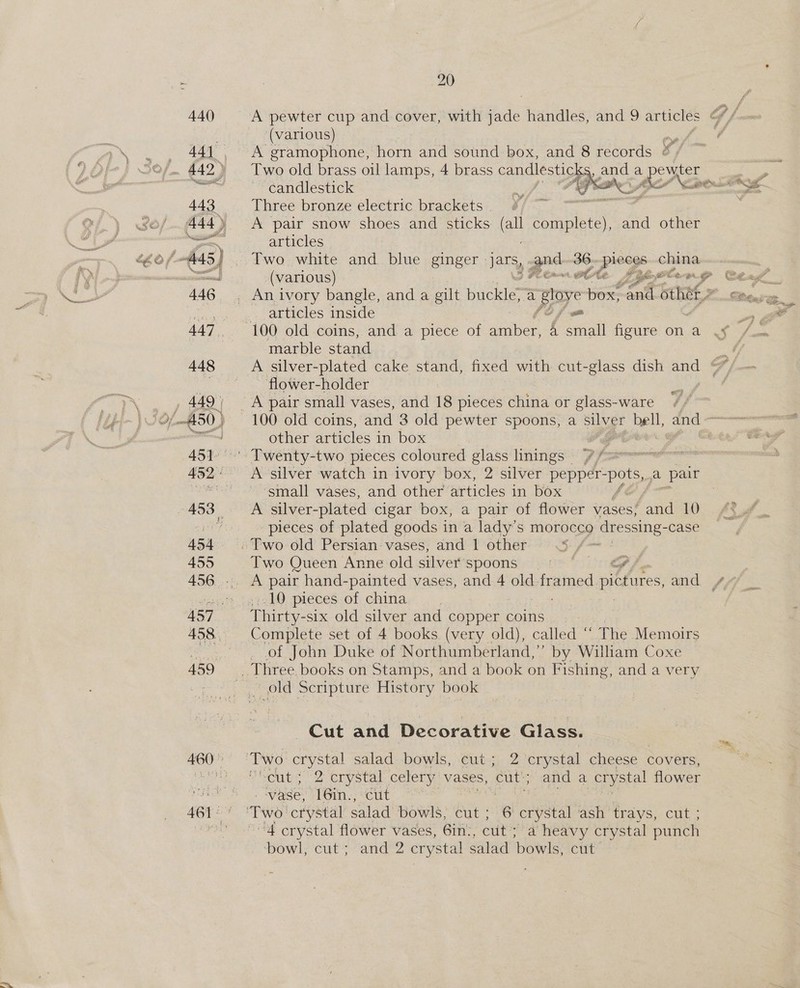 20
440 A pewter cup and cover, with jade handles, and 9 articles
(various)
441 A gramophone, horn and sound box, and 8 records
442 Two old brass oil lamps, 4 brass candlesticks, and a pewter
candlestick
443 Three bronze electric brackets
30/- 444 A pair snow shoes and sticks (all complete), and other
articles
445 Two white and blue ginger jars, and 36 pieces china
(various)
446 An ivory bangle, and a gilt buckle, a glove box, and other
articles inside
447 100 old coins, and a piece of amber, 4 small figure on a
marble stand
448 A silver-plated cake stand, fixed with cut-glass dish and
flower-holder
449 A pair small vases, and 18 pieces china or glass-ware
450 100 old coins, and 3 old pewter spoons, a silver bell, and
other articles in box
451 Twenty-two pieces coloured glass linings
452 A silver watch in ivory box, 2 silver pepper-pots, a pair
small vases, and other articles in box
453 A silver-plated cigar box, a pair of flower vases, and 10
pieces of plated goods in a lady's morocco dressing-case
454 Two old Persian vases, and 1 other 5/-
455 Two Queen Anne old silver spoons
456 A pair hand-painted vases, and 4 old framed pictures, and
10 pieces of china
457 Thirty-six old silver and copper coins
458 Complete set of 4 books (very old), called “ The Memoirs
of John Duke of Northumberland,” by William Coxe
459 Three books on Stamps, and a book on Fishing, and a very
old Scripture History book
Cut and Decorative Glass.
460 Two crystal salad bowls, cut ; 2 crystal cheese covers,
cut ; 2 crystal celery vases, cut ; and a crystal flower
vase, 16in., cut
461 Two crystal salad bowls, cut ; 6 crystal ash trays, cut ;
4 crystal flower vases, 6in., cut ; a heavy crystal punch
bowl, cut ; and 2 crystal salad bowls, cut